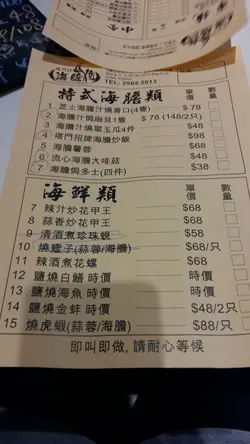 TEL: 2565 2013
特式海膽類 單價 數量
1 芝士海膽汁燒青口(4隻) $ 78
2 海膽汁焗扇貝1隻 $ 78 (148/2只)
3 海膽汁燒翠玉瓜4件 $48
4 塔門招牌海膽炒飯 $98
5 海膽薯蓉 $68
6 流心海膽大啡菇 $48
7 海膽焗多士(四件) $38
海鮮類 單價 數量
7 辣汁炒花甲王 $68
8 蒜香炒花甲王 $68
9 清酒煮珍珠蜆 $58
10 燒蟶子(蒜蓉/海膽) $68/只
11 辣酒煮花螺 $68
12 鹽燒白鱔 時價 時價
13 鹽燒海魚 時價 時價
14 鹽燒金蚌 時價 $48/2只
15 燒虎蝦(蒜蓉/海膽) $88/只
即叫即做, 請耐心等候